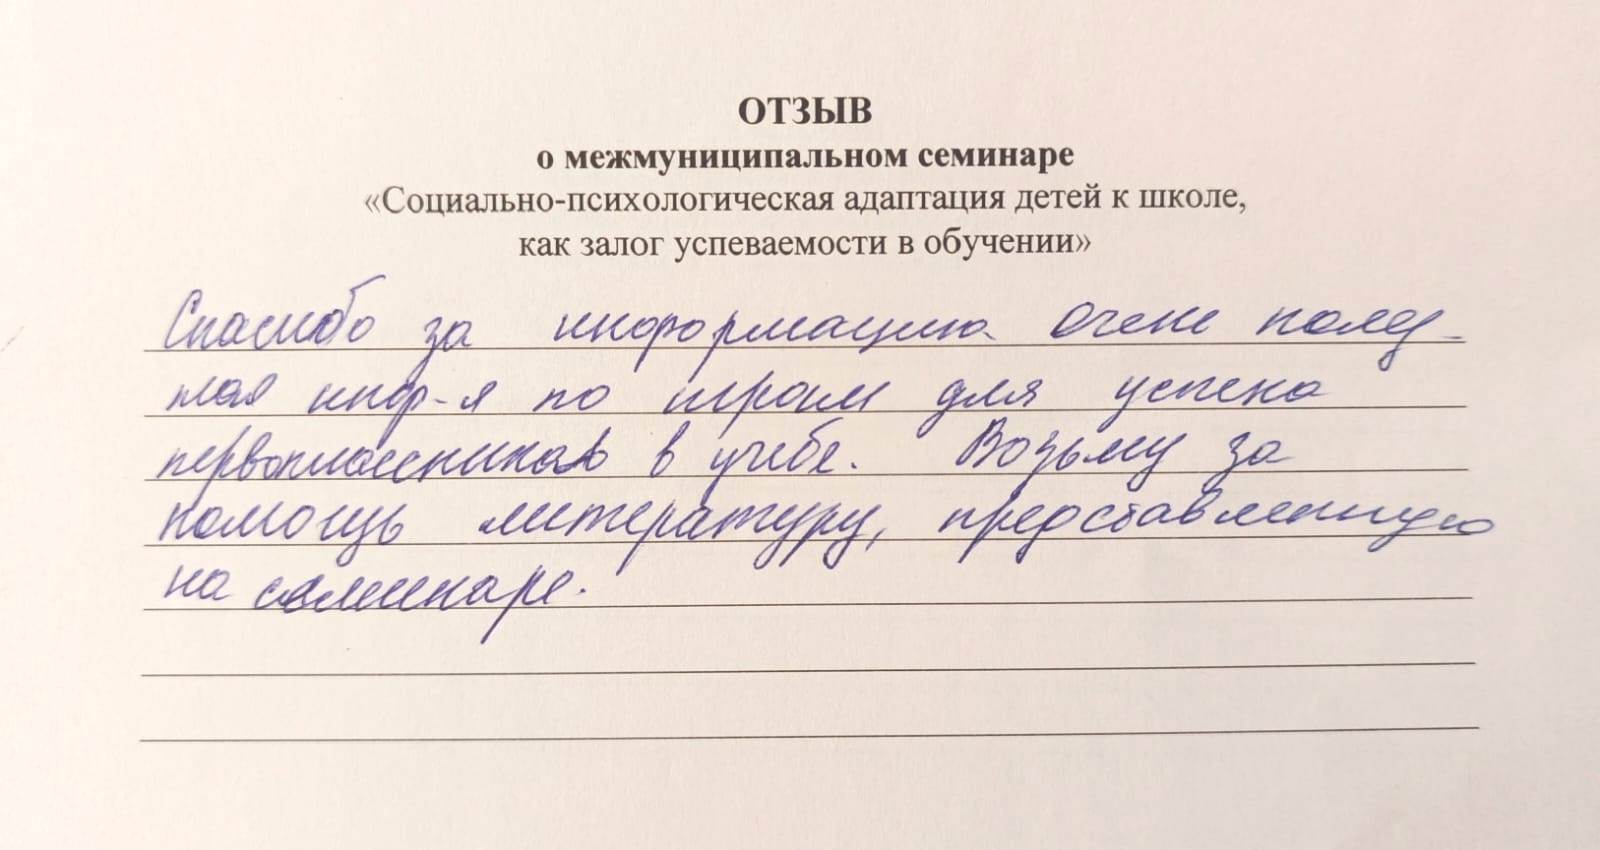 ОТЗЫВ
о межмуниципальном семинаре
«Социально-психологическая адаптация детей к школе,
как залог успеваемости в обучении»
Спасибо за информацию. Очень полез-
ная инф-я по играм для успеха
первоклассников в учебе. Возьму за
помощь литературу, представленную
на семинаре.